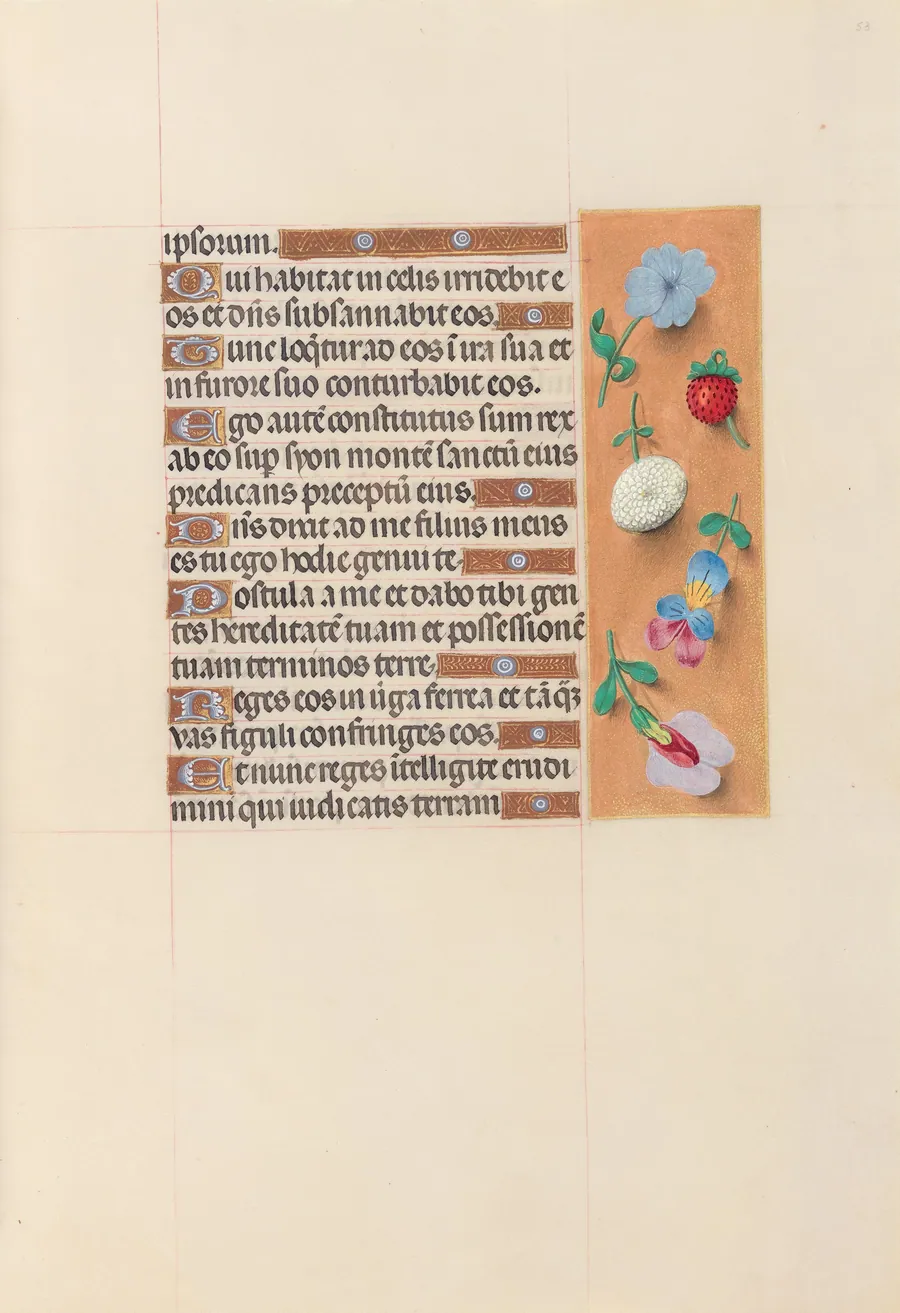 53
ipsorum.
Qui habitat in celis irridebit e
os et dn̄s subsannabit eos.
Tunc loq̄tur ad eos ī ira sua et
in furore suo conturbabit eos.
Ego autē constitutus sum rex
ab eo sup̄ syon montē sanctū eius
predicans preceptū eius.
Dn̄s dixit ad me filius meus
es tu ego hodie genui te.
Postula a me et dabo tibi gen
tes hereditatē tuam et possessionē
tuam terminos terre.
Reges eos in v̄ga ferrea et tāqꝫ
vas figuli confringes eos.
Et nunc reges ītelligite erudi
mini qui iudicatis terram